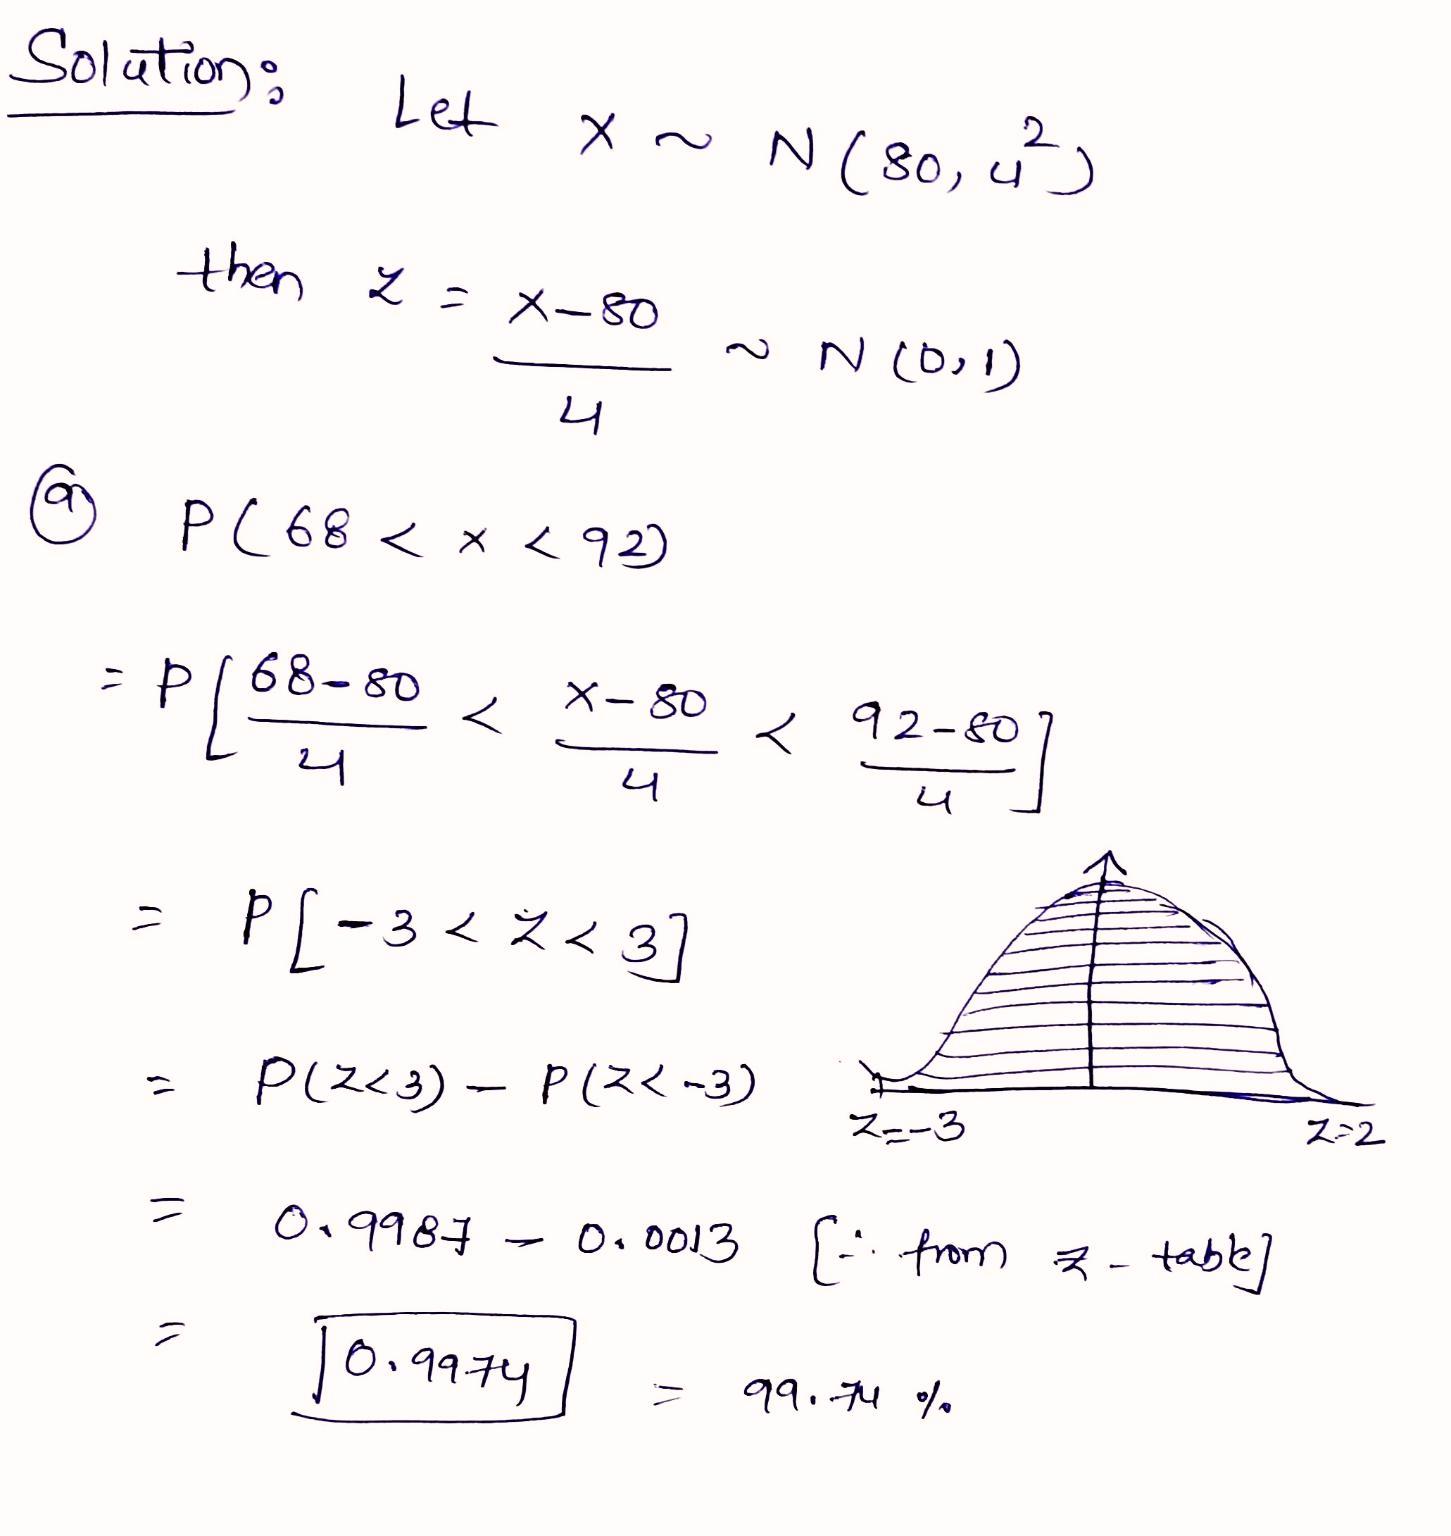 Solution:
Let X ~ N(80, 4²)
then Z = X-80/4 ~ N(0,1)
(a) P(68 < x < 92)
= P[68-80/4 < X-80/4 < 92-80/4]
= P[-3 < Z < 3]
= P(Z<3) - P(Z<-3)
Z=-3
Z=2
= 0.9987 - 0.0013 [∵ from z-table]
= 0.9974 = 99.74 %